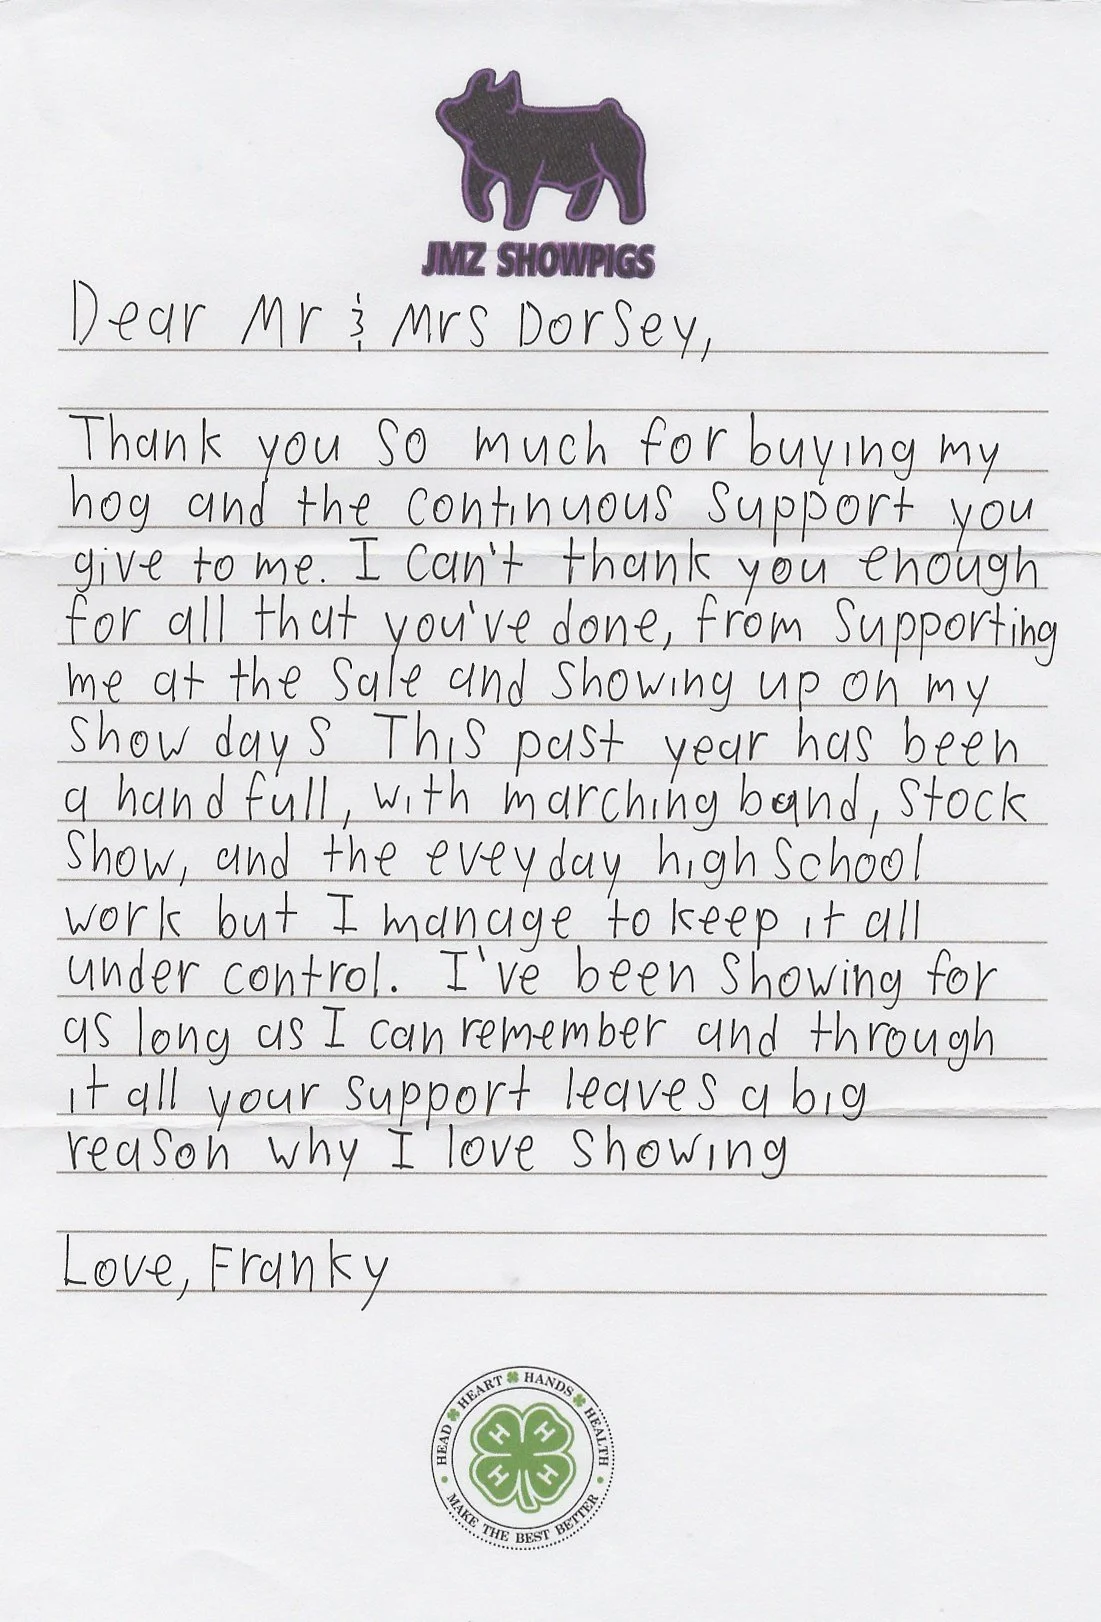 JMZ SHOWPIGS
Dear Mr & Mrs Dorsey,
Thank you so much for buying my
hog and the continuous support you
give to me. I can't thank you enough
for all that you've done, from supporting
me at the sale and showing up on my
show days This past year has been
a hand full, with marching band, stock
show, and the eveyday high school
work but I manage to keep it all
under control. I've been showing for
as long as I can remember and through
it all your support leaves a big
reason why I love showing
Love, Franky
HEAD HEART HANDS HEALTH
H H H H
MAKE THE BEST BETTER